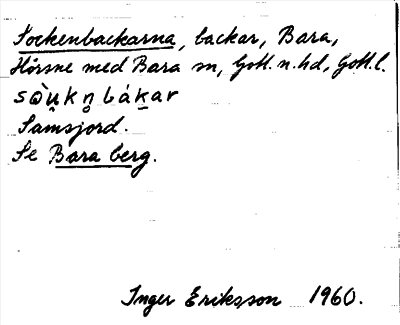 Sockenbackarna, backar, Bara,
Hörsne med Bara sn, Gotl. n. hd, Gotl. l.
sòu̯kn̥bákar
Samsjord.
Se Bara berg.
Inger Eriksson 1960.